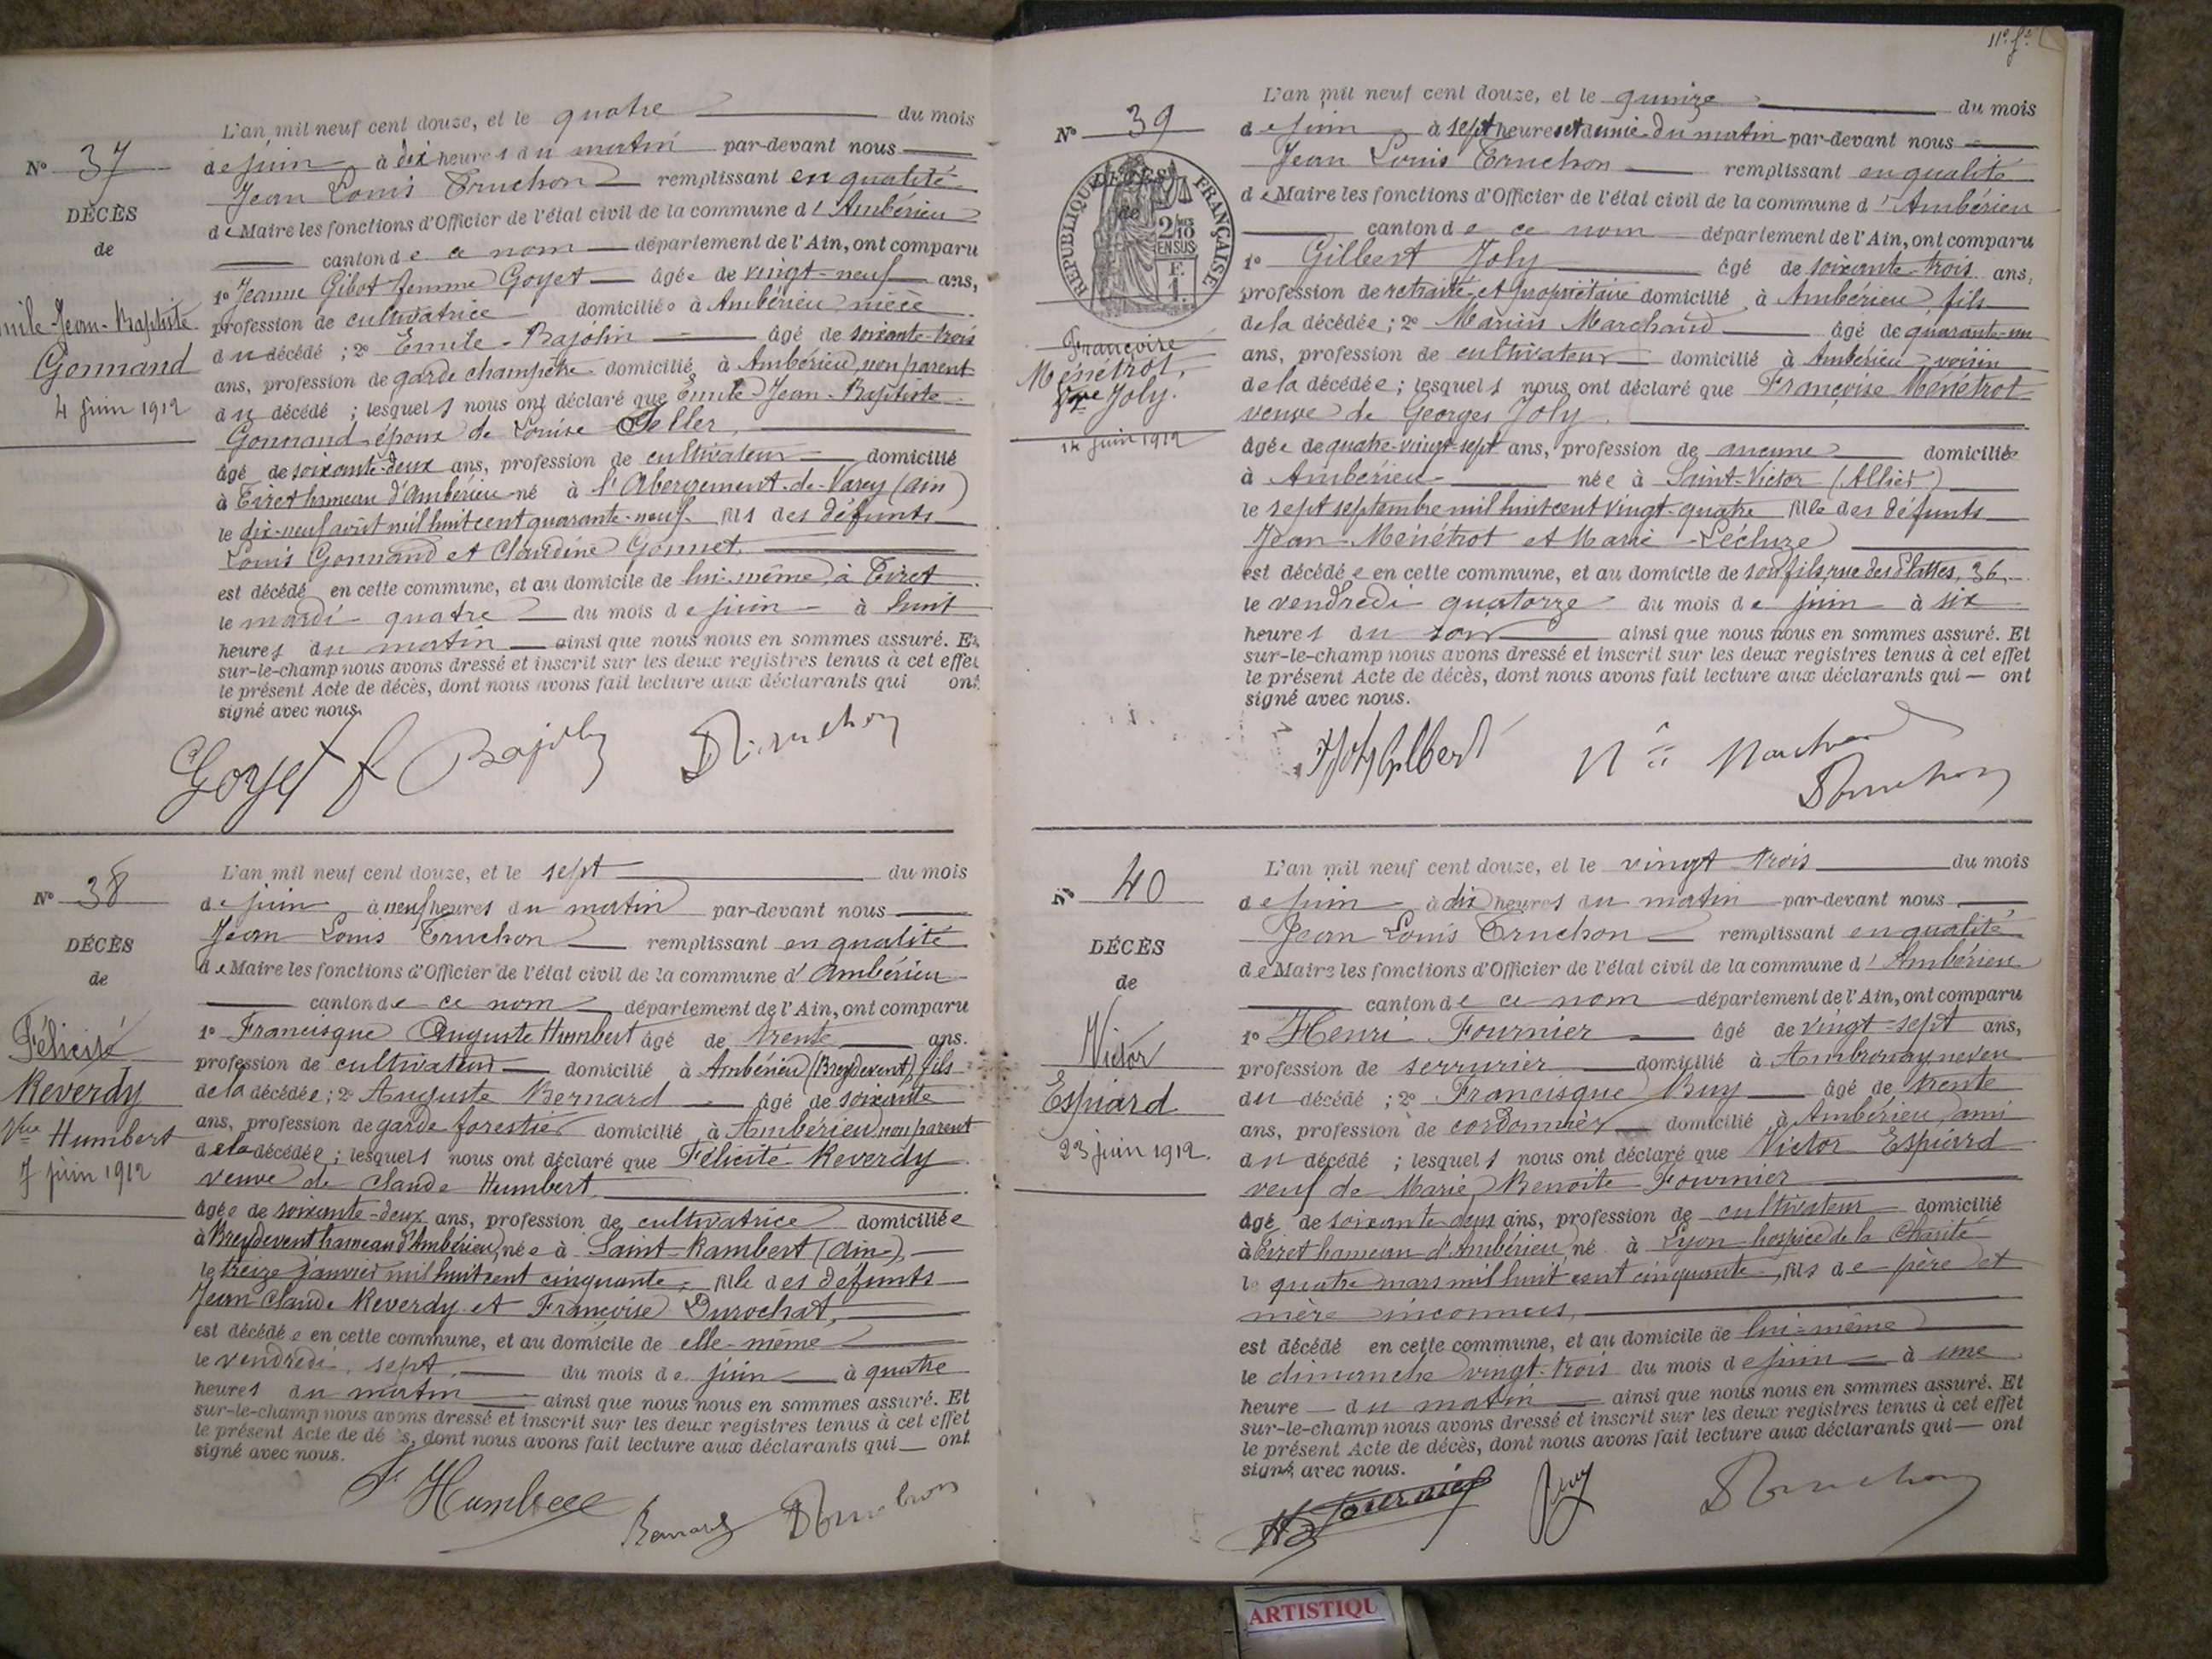 L'an mil neuf cent douze, et le quatre du mois
N° 37
de juin à dix heures du matin par-devant nous
Jean Louis Truchon remplissant en qualité
DÉCÈS
de Maire les fonctions d'Officier de l'état civil de la commune d'Ambérieu
de
canton de ce nom département de l'Ain, ont comparu
1° Jeanne Gibot femme Goyet âgée de vingt-neuf ans,
mile-Jean-Baptiste
profession de cultivatrice domiciliée à Ambérieu, niece
Gonnand
du décédé ; 2° Emile Bajolin âgé de soixante-trois
ans, profession de garde champêtre domicilié à Ambérieu, non parent
4 juin 1912
du décédé ; lesquels nous ont déclaré que Emile-Jean-Baptiste
Gonnand époux de Louise Seller,
âgé de soixante-deux ans, profession de cultivateur domicilié
à Tiret hameau d'Ambérieu né à l'Abergement-de-Varey (Ain)
le dix-neuf août mil huit cent quarante-neuf. fils des défunts
Louis Gonnand et Claudine Gonnet,
est décédé en cette commune, et au domicile de lui-même, à Tiret
le mardi quatre du mois de juin à huit
heures du matin ainsi que nous nous en sommes assuré. Et
sur-le-champ nous avons dressé et inscrit sur les deux registres tenus à cet effet
le présent Acte de décès, dont nous avons fait lecture aux déclarants qui ont
signé avec nous.
Goyet f Bajolin Truchon
L'an mil neuf cent douze, et le sept du mois
N° 38
de juin à neuf heures du matin par-devant nous
Jean Louis Truchon remplissant en qualité
DÉCÈS
de Maire les fonctions d'Officier de l'état civil de la commune d'Ambérieu
de
canton de ce nom département de l'Ain, ont comparu
1° Francisque Auguste Humbert âgé de trente ans.
Félicité
profession de cultivateur domicilié à Ambérieu (Breydevent), fils
Reverdy
de la décédée ; 2° Auguste Bernard âgé de soixante
ans, profession de garde forestier domicilié à Ambérieu, non parent
Vve Humbert
de la décédée ; lesquels nous ont déclaré que Félicité Reverdy
7 juin 1912
veuve de Claude Humbert,
âgée de soixante-deux ans, profession de cultivatrice domiciliée
à Breydevent hameau d'Ambérieu, née à Saint-Rambert (Ain),
le treize janvier mil huit cent cinquante, fille des défunts
Jean Claude Reverdy et Françoise Durochat,
est décédée en cette commune, et au domicile de elle-même
le vendredi sept du mois de juin à quatre
heures du matin ainsi que nous nous en sommes assuré. Et
sur-le-champ nous avons dressé et inscrit sur les deux registres tenus à cet effet
le présent Acte de dé s, dont nous avons fait lecture aux déclarants qui ont
signé avec nous.
F Humbert Bernard Truchon
11e fo
L'an mil neuf cent douze, et le quinze du mois
N° 39
de juin à sept heures et demie du matin par-devant nous
Jean Louis Truchon remplissant en qualité
DÉCÈS
de
RÉPUBLIQUE FRANÇAISE
2/10 EN SUS
F. 1.
de Maire les fonctions d'Officier de l'état civil de la commune d'Ambérieu
canton de ce nom département de l'Ain, ont comparu
1° Gilbert Joly âgé de soixante-trois ans,
profession de retraité et propriétaire domicilié à Ambérieu, fils
de la décédée ; 2° Marius Marchand âgé de quarante-un
Françoise
ans, profession de cultivateur domicilié à Ambérieu, voisin
Ménétrot,
de la décédée ; lesquels nous ont déclaré que Françoise Ménétrot
Vve Joly.
veuve de Georges Joly,
14 juin 1912
âgée de quatre-vingt-sept ans, profession de aucune domiciliée
à Ambérieu née à Saint-Victor (Allier)
le sept septembre mil huit cent vingt-quatre fille des défunts
Jean Ménétrot et Marie Lécluze
est décédée en cette commune, et au domicile de son fils, rue des Plattes, 36,
le vendredi quatorze du mois de juin à six
heures du soir ainsi que nous nous en sommes assuré. Et
sur-le-champ nous avons dressé et inscrit sur les deux registres tenus à cet effet
le présent Acte de décès, dont nous avons fait lecture aux déclarants qui ont
signé avec nous.
Joly Gilbert Marchand
Truchon
L'an mil neuf cent douze, et le vingt trois du mois
N° 40
de juin à dix heures du matin par-devant nous
Jean Louis Truchon remplissant en qualité
DÉCÈS
de Maire les fonctions d'Officier de l'état civil de la commune d'Ambérieu
de
canton de ce nom département de l'Ain, ont comparu
Victor
1° Henri Fournier âgé de vingt-sept ans,
profession de serrurier domicilié à Ambronay, neveu
Espiard
du décédé ; 2° Francisque Buy âgé de trente
ans, profession de cordonnier domicilié à Ambérieu, ami
23 juin 1912.
du décédé ; lesquels nous ont déclaré que Victor Espiard
veuf de Marie Benoite Fournier
âgé de soixante deux ans, profession de cultivateur domicilié
à Tiret hameau d'Ambérieu, né à Lyon hospice de la Charité
le quatre mars mil huit cent cinquante, fils de père et
mère inconnus,
est décédé en cette commune, et au domicile de lui-même
le dimanche vingt-trois du mois de juin à une
heure du matin ainsi que nous nous en sommes assuré. Et
sur-le-champ nous avons dressé et inscrit sur les deux registres tenus à cet effet
le présent Acte de décès, dont nous avons fait lecture aux déclarants qui ont
signé avec nous.
H Fournier Buy Truchon
ARTISTIQU